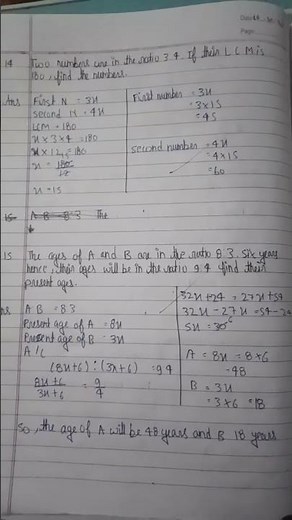 Date
Page
14 Two numbers are in the ratio 3:4. If their L C M is
180, find the numbers.
Ans First N = 3x
second N = 4x
LCM = 180
x × 3 × 4 = 180
x × 12 = 180
x = 180
12
x = 15
First number = 3x
= 3×15
= 45
second number = 4x
= 4×15
= 60
15 A B = 8:3 The
15. The ages of A and B are in the ratio 8:3. Six years
hence, their ages will be in the ratio 9:4 find their
present ages.
ns A B = 8 3
Present age of A = 8x
Present age of B = 3x
A/C
(8x+6) : (3x+6) = 9 4
8x+6 = 9
3x+6 4
32x+24 = 27x+54
32x - 27x = 54-24
5x = 30 6
A = 8x = 8×6
-48
B = 3x
= 3×6 = 18
So, the age of A will be 48 years and B 18 years